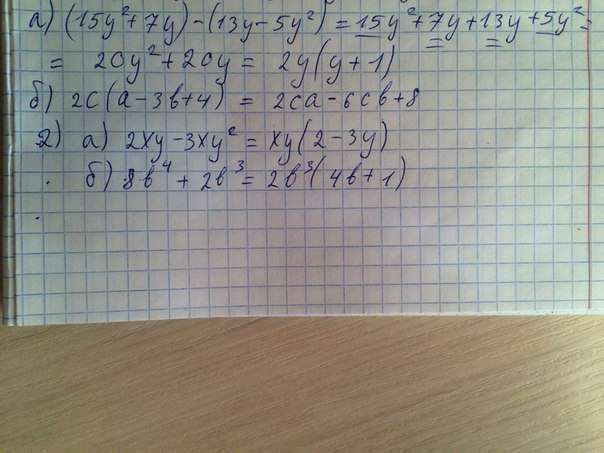 а) (15y²+7y)-(13y-5y²) = 15y²+7y+13y+5y²=
= 20y²+20y = 2y(y+1)
б) 2c(a-3b+4) = 2ca-6cb+8
2) а) 2xy-3xy² = xy(2-3y)
б) 8b⁴ + 2b³ = 2b³(4b+1)